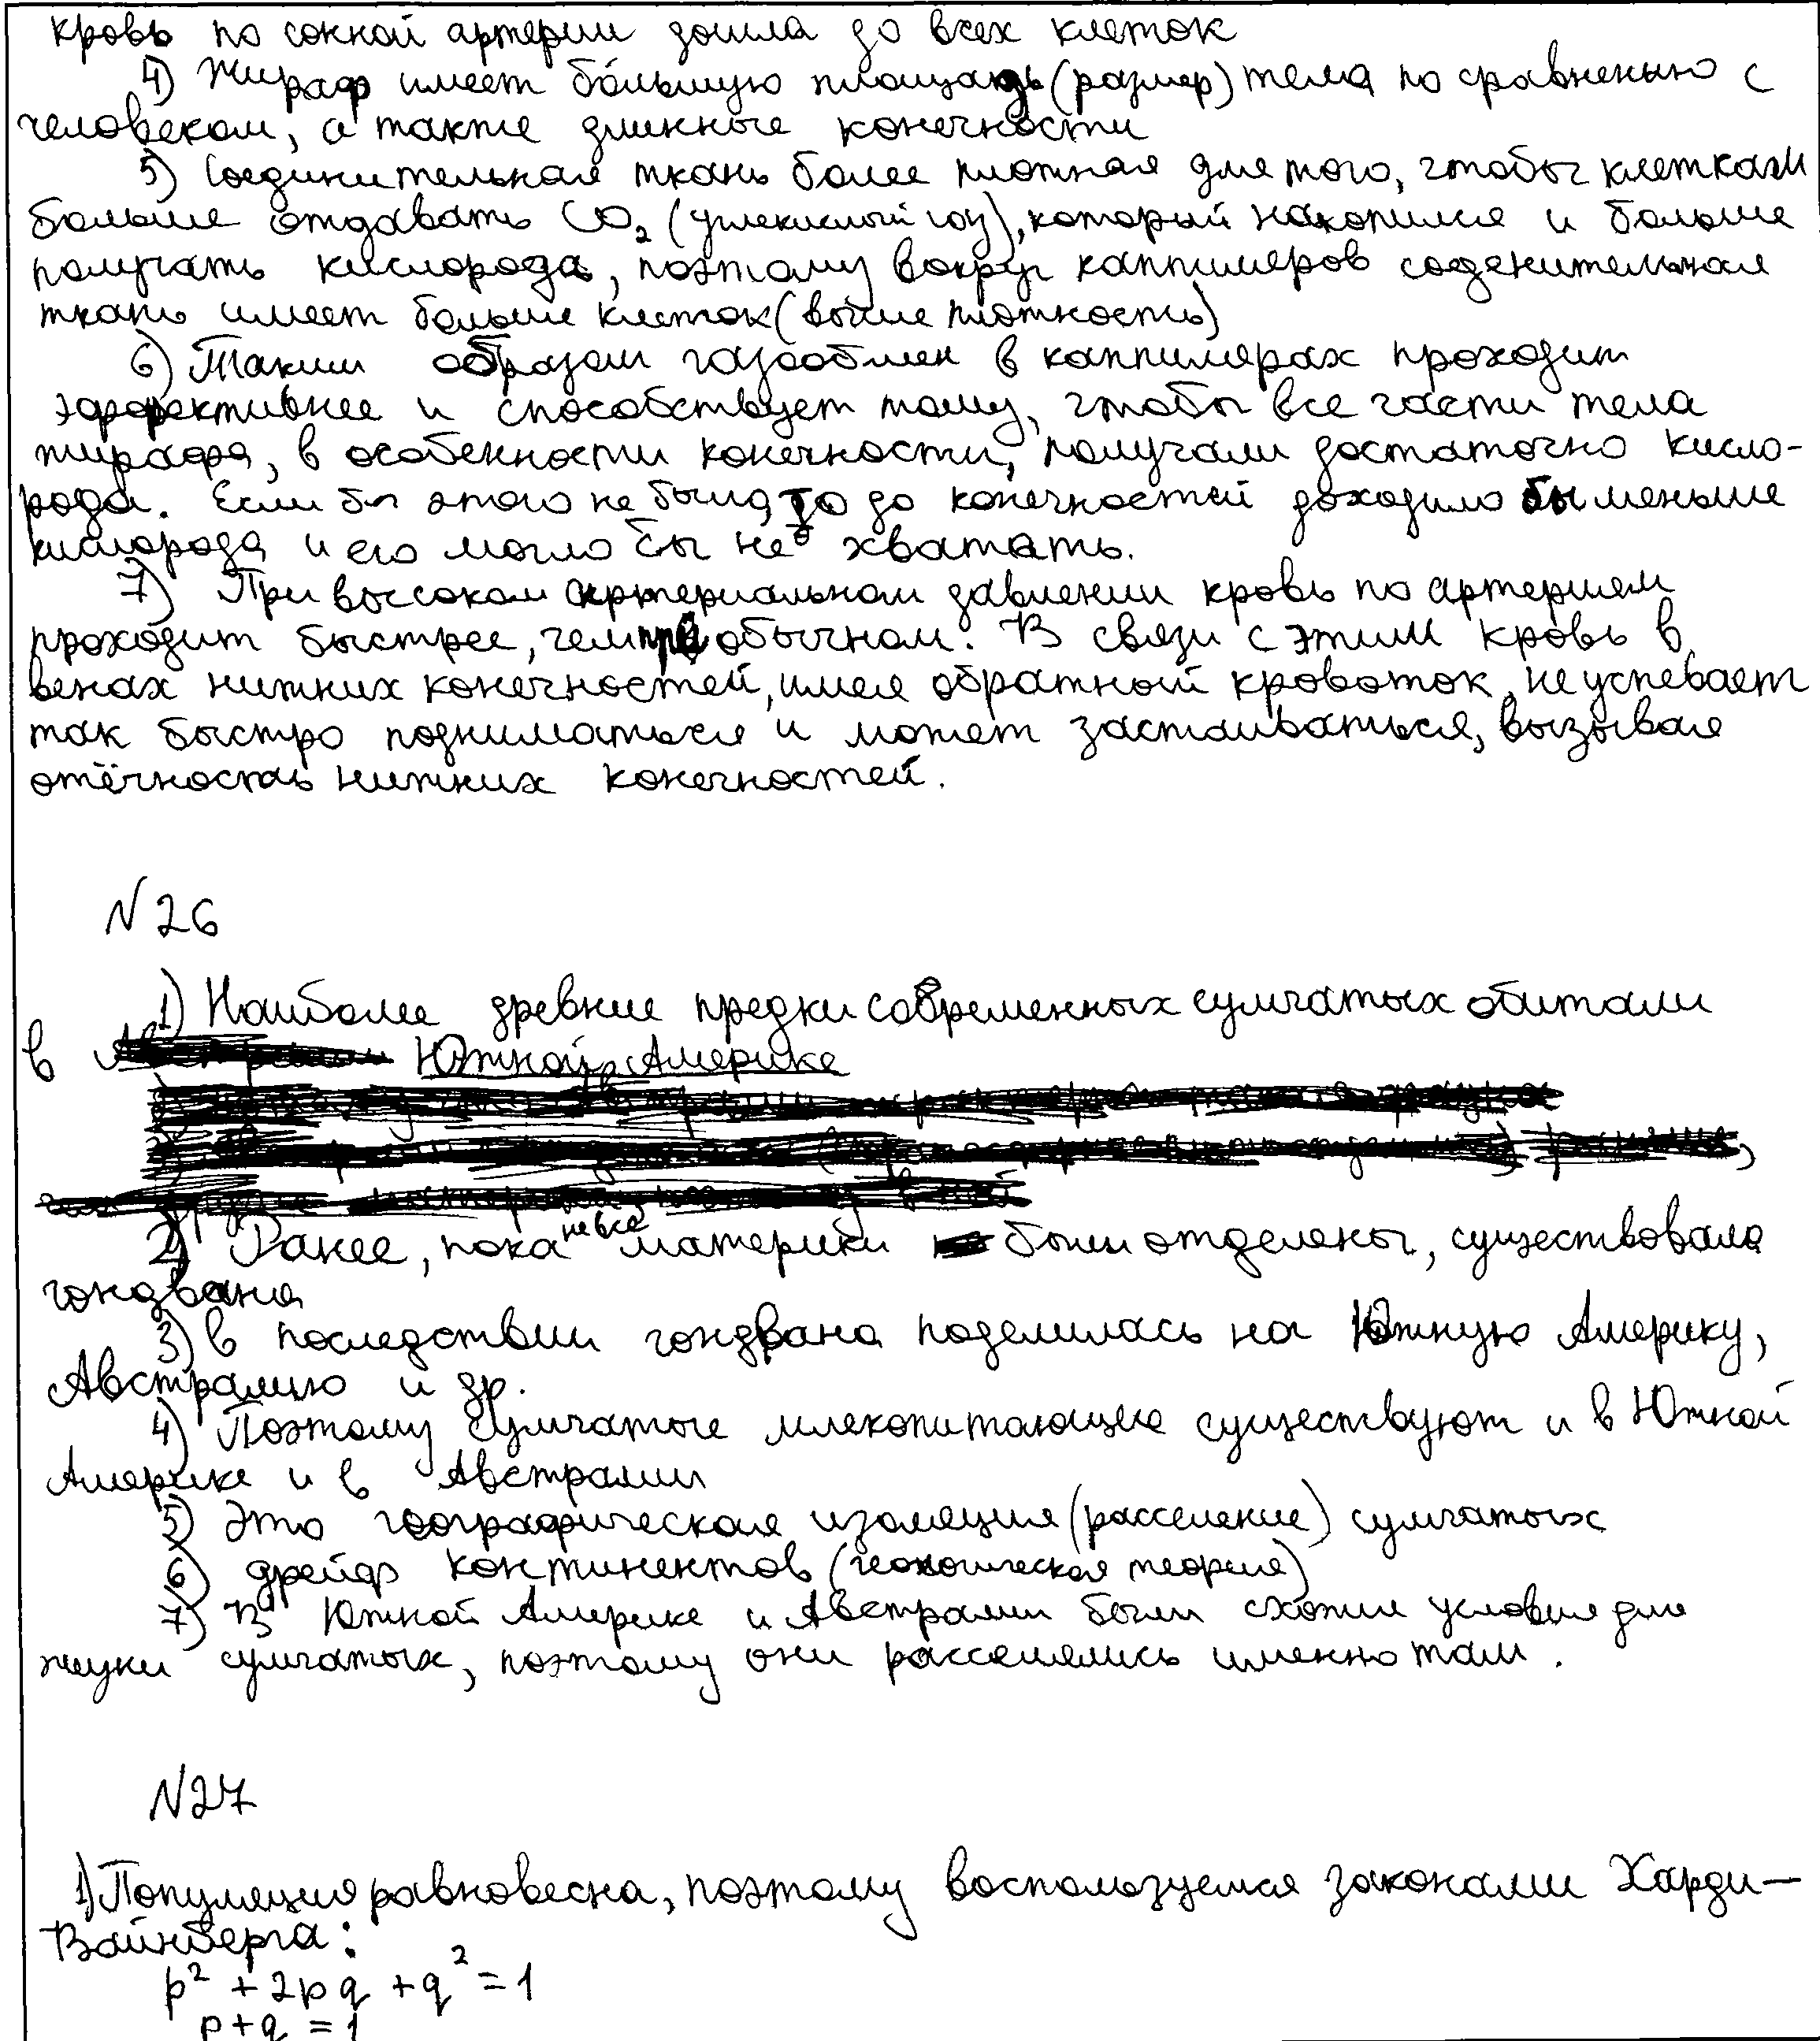 кровь по сонной артерии дошла до всех клеток
4) Жираф имеет бо́льшую площадь (размер) тела по сравнению с
человеком, а также длинные конечности
5) Соединительная ткань более плотная для того, чтобы клеткам
больше отдавать CO₂ (углекислый газ), который накопился и больше
получать кислорода, поэтому вокруг каппиляров соденительная
ткань имеет больше клеток (выше плотность)
6) Таким образом газообмен в каппилярах проходит
эффективнее и способствует тому, чтобы все части тела
жирафа, в особенности конечности, получали достаточно кисло-
рода. Если бы этого не было, то до конечностей доходило бы меньше
кислорода и его могло бы не хватать.
7) При высоком артериальном давлении кровь по артериям
проходит быстрее, чем при обычном. В связи с этим кровь в
венах нижних конечностей, имея обратный кровоток, не успевает
так быстро подниматься и может застаиваться, вызывая
отёчность нижних конечностей.
N26
1) Наиболее древние предки современных сумчатых обитали
в Южной Америке
2) Ранее, пока не все материки были отделены, существовала
гондвана
3) в последствии гондвана поделилась на Южную Америку,
Австралию и др.
4) Поэтому сумчатые млекопитающие существуют и в Южной
Америке и в Австралии
5) Это географическая изоляция (расселение) сумчатых
6) дрейф континентов (геологическая теория)
7) В Южной Америке и Австралии были схожие условия для
жизни сумчатых, поэтому они расселялись именно там.
N27
1) Популяция равновесна, поэтому воспользуемся законами Харди–
Вайнберга:
p² + 2pq + q² = 1
p + q = 1